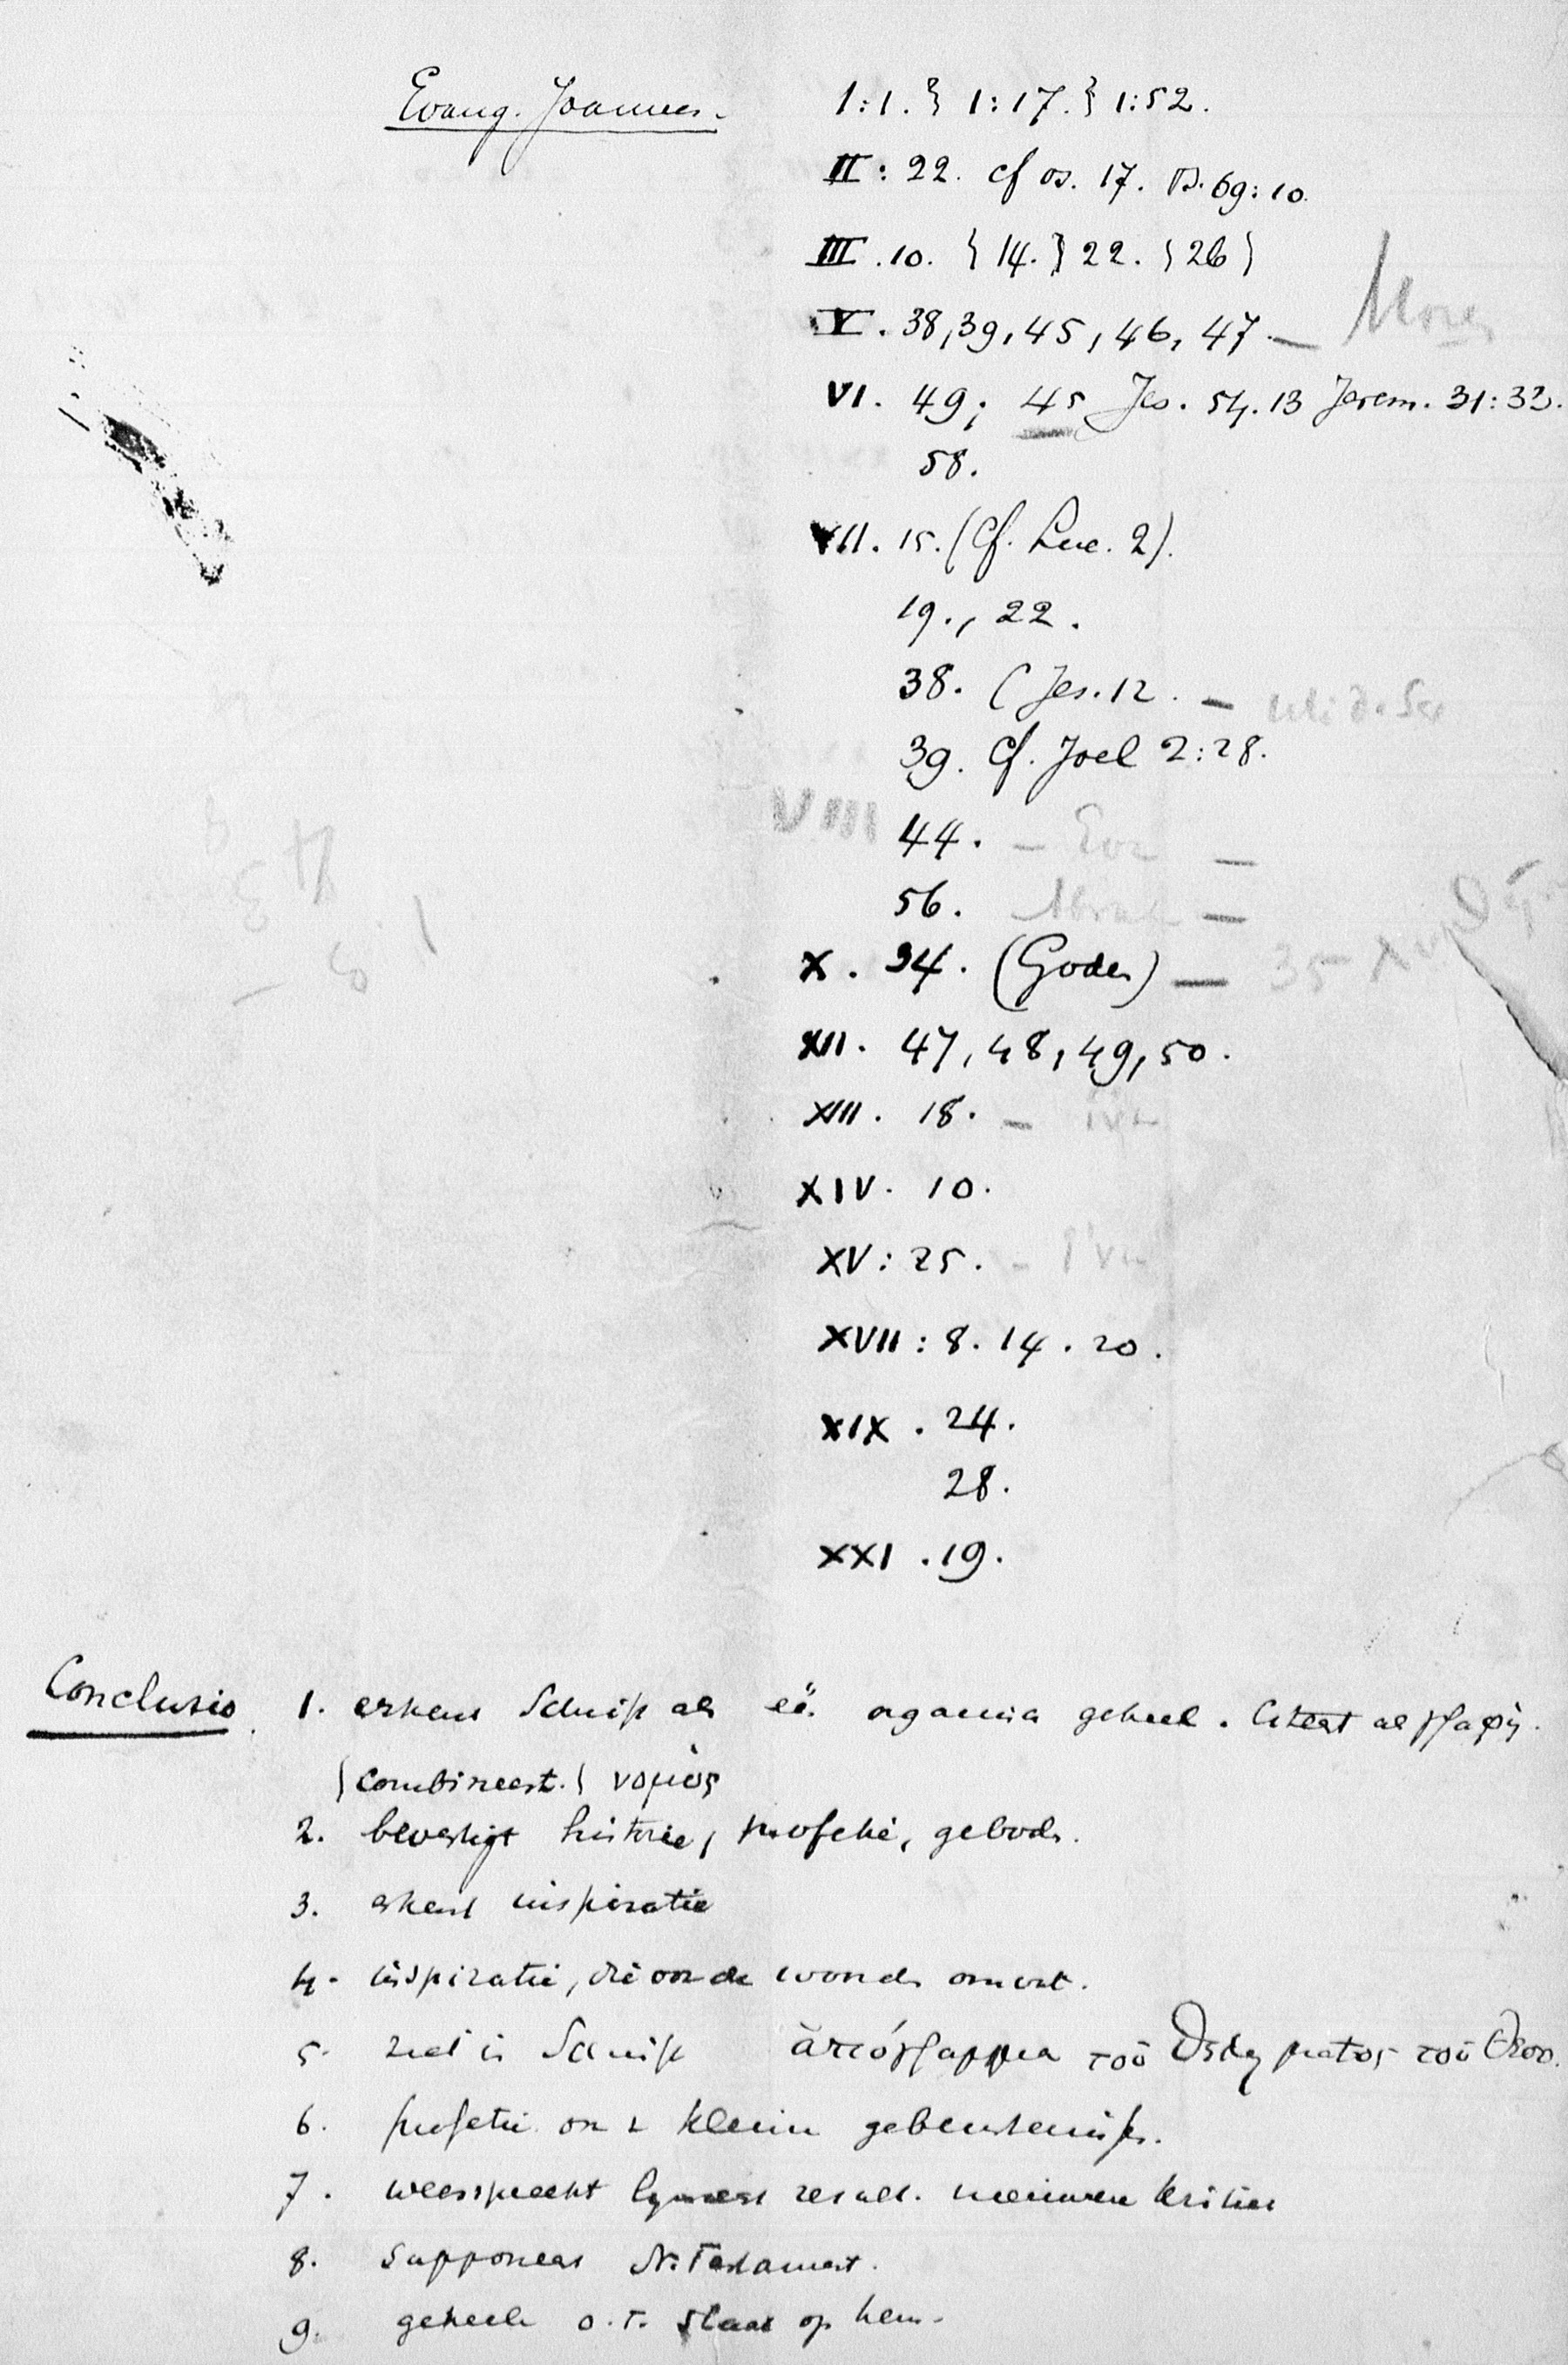 Evang. Joannes.
1:1. } 1:17. } 1:52.
II: 22. cf vs. 17. Ps. 69:10.
III. 10. { 14. } 22. } 26 }
V. 38, 39, 45, 46, 47. — Mozes
VI. 49; 45 Jes. 54.13 Jerem. 31:33.
58.
VII. 15. (Cf. Luc. 2).
19., 22.
38. (Jes. 12. —
39. Cf. Joel 2:28.
VIII 44. — Eva —
56. Abrah —
X. 34. (Goden) — 35
XII. 47, 48, 49, 50.
XIII. 18. —
XIV. 10.
XV: 25. -
XVII: 8. 14. 20.
XIX. 24.
28.
XXI. 19.
Conclusio. 1. erkent Schrift als geheel. Citeert als γραφή.
{combineert.} νομος
2. bevestigt historie, profetie, gebods.
3. erkent inspiratie
4. inspiratie, die ook de woorden omvat.
5. ziet in Schrift ἀπόγραμμα τοῦ θελήματος τοῦ Θεου.
6. profetie klein gebeurtenissen.
7. weerspreekt result. nieuwere kritiek
8. supponeert N. Testament.
9. geheele O.T. slaat op hem.